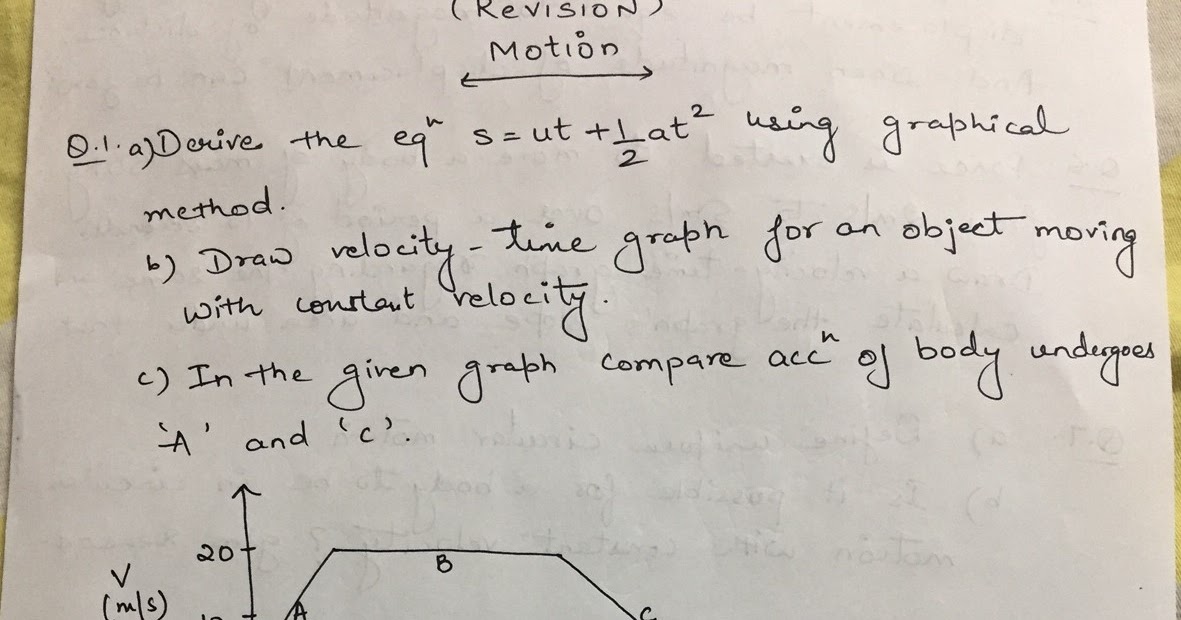 (REVISION)
Motion
Q.1. a) Derive the eqⁿ s = ut + 1/2 at² using graphical
method.
b) Draw velocity - time graph for an object moving
with constant velocity.
c) In the given graph compare accⁿ of body undergoes
'A' and 'C'.
20
B
V
(m/s)
A
C